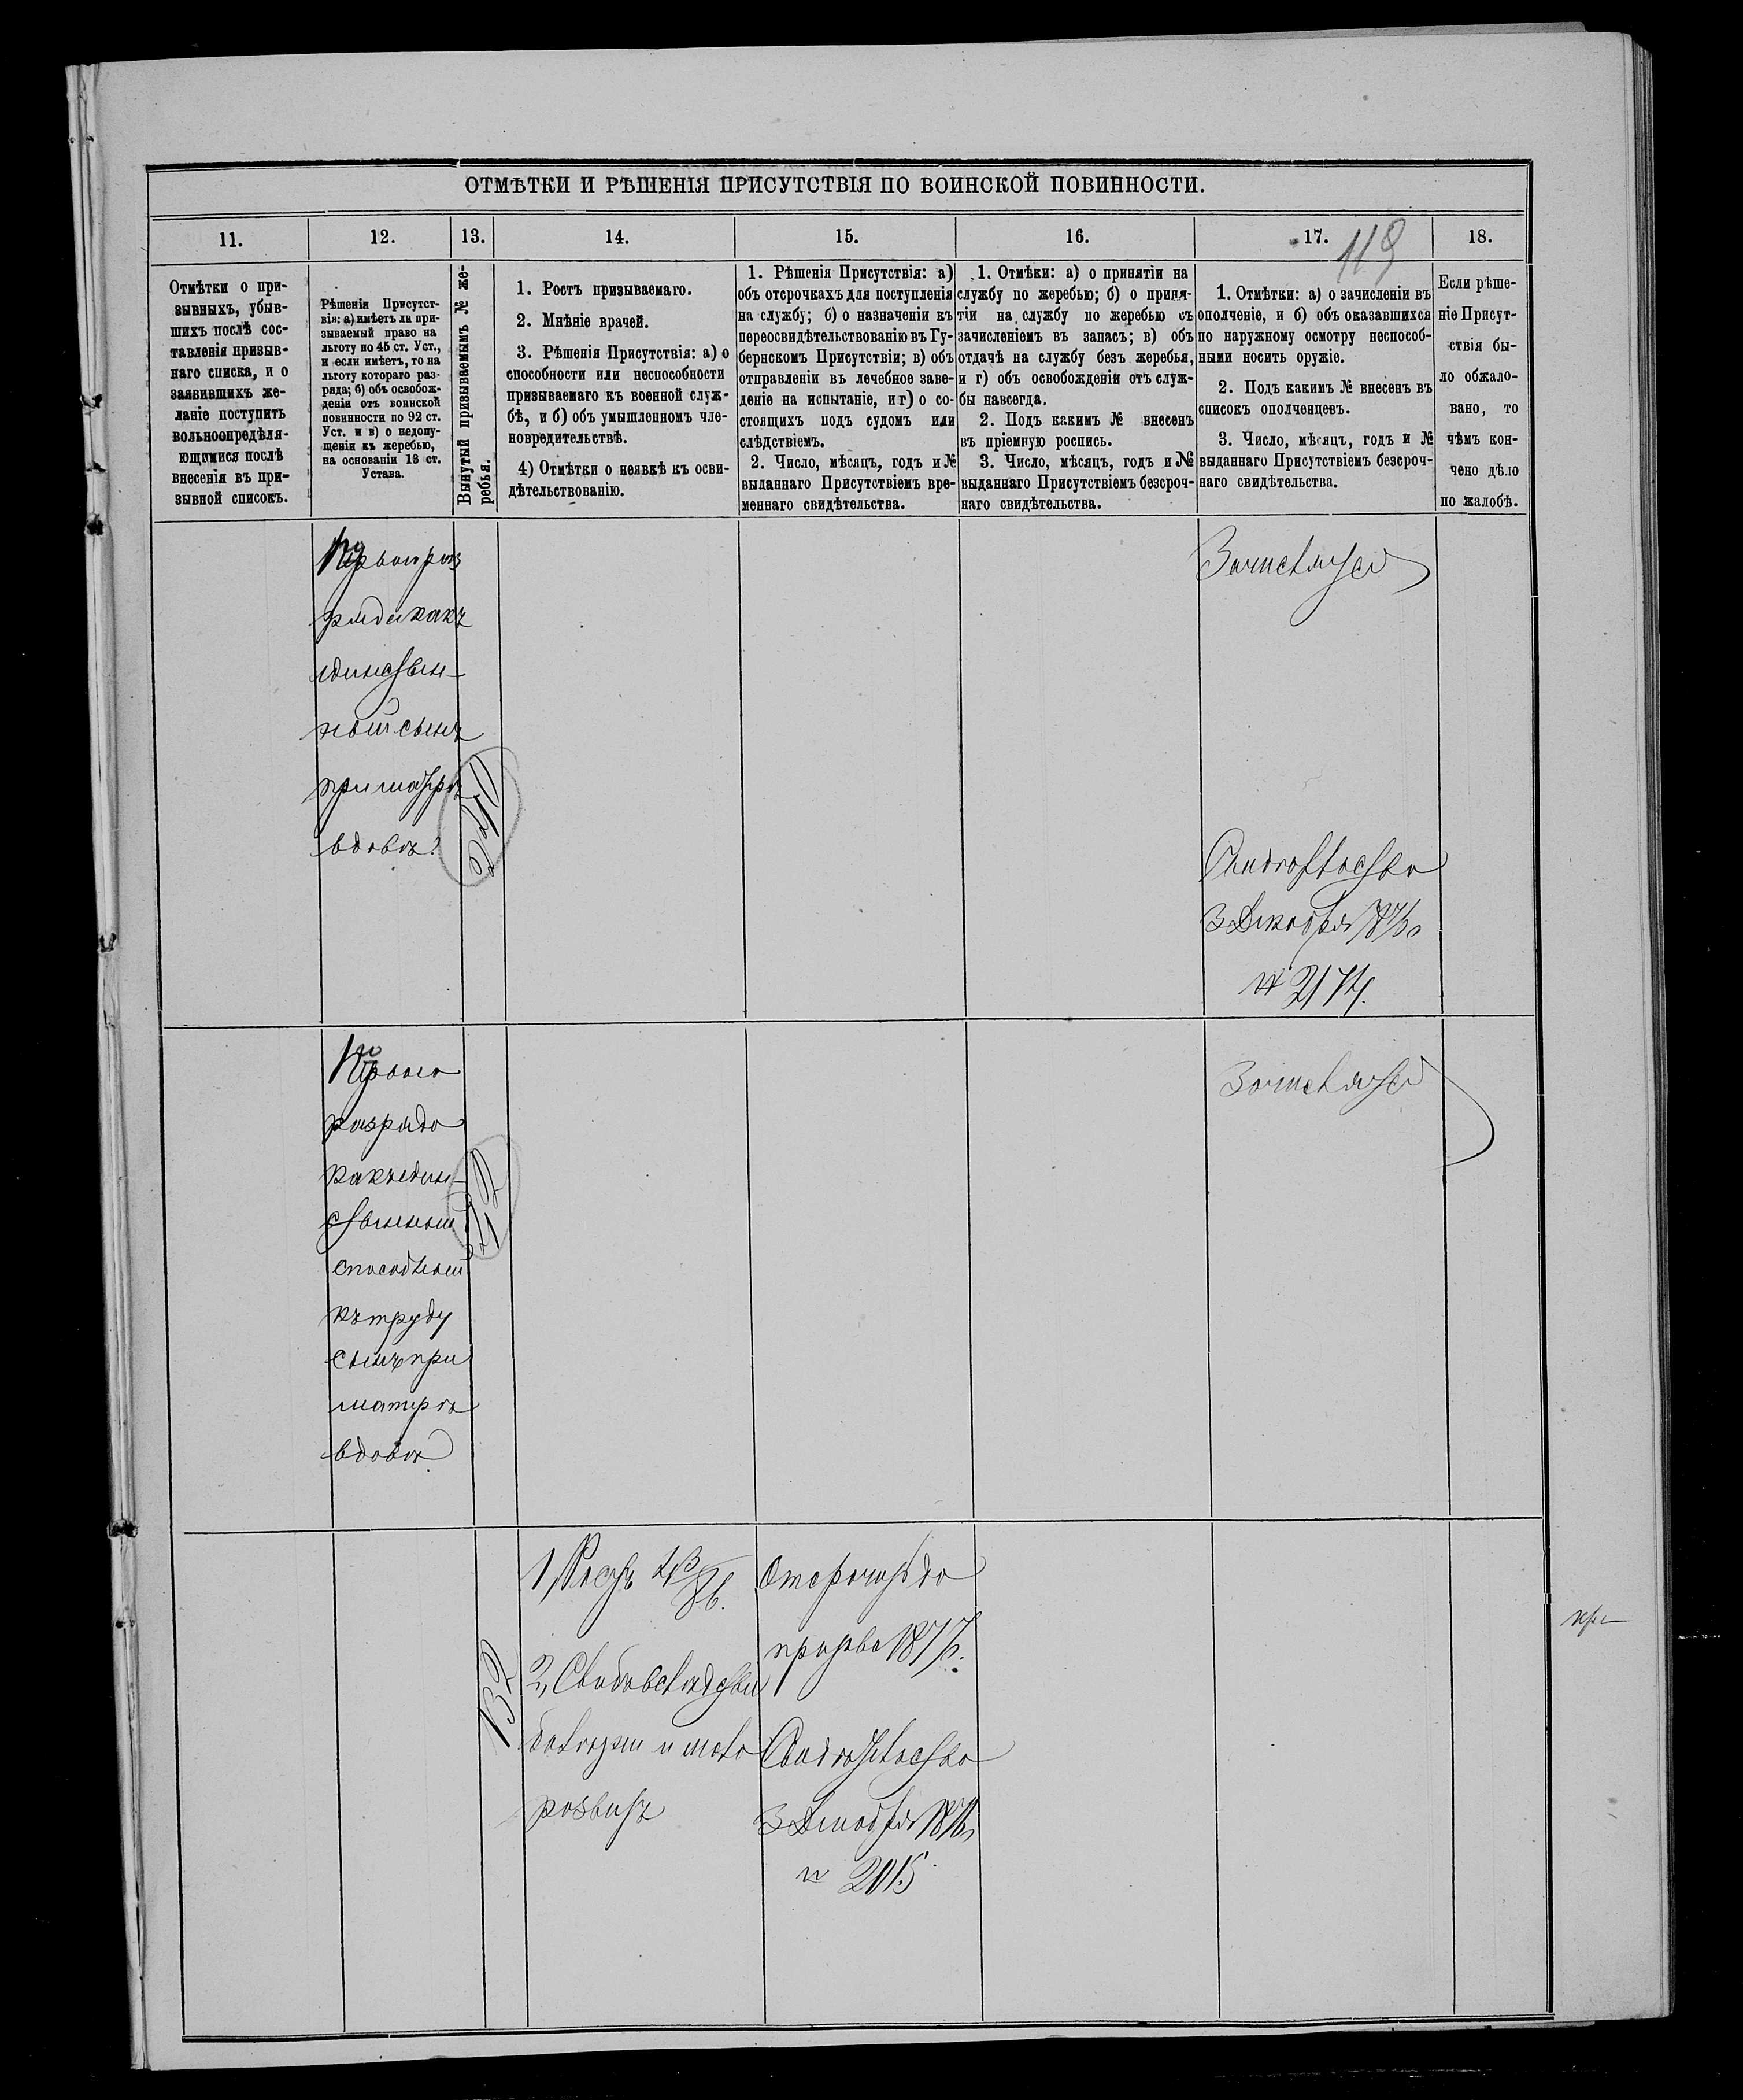 ОТМѢТКИ И РѢШЕНІЯ ПРИСУТСТВІЯ ПО ВОИНСКОЙ ПОВИННОСТИ.
11.
12.
13.
14.
15.
16.
17.
18.
119
Отмѣтки о при-
зывныхъ, убыв-
шихъ послѣ сос-
тавленія призыв-
наго списка, и о
заявившихъ же-
ланіе поступить
вольноопредѣля-
ющимися послѣ
внесенія въ при-
зывной списокъ.
Рѣшенія Присутст-
вія: а) имѣетъ ли при-
зываемый право на
льготу по 45 ст. Уст.,
и если имѣетъ, то на
льготу котораго раз-
ряда; б) объ освобож-
деніи отъ воинской
повинности по 92 ст.
Уст. и в) о недопу-
щеніи къ жеребью,
на основаніи 13 ст.
Устава.
Вынутый призываемымъ № же-
ребья.
1. Ростъ призываемаго.
2. Мнѣніе врачей.
3. Рѣшенія Присутствія: а) о
способности или неспособности
призываемаго къ военной служ-
бѣ, и б) объ умышленномъ чле-
новредительствѣ.
4) Отмѣтки о неявкѣ къ осви-
дѣтельствованію.
1. Рѣшенія Присутствія: а)
объ отсрочкахъ для поступленія
на службу; б) о назначеніи къ
переосвидѣтельствованію въ Гу-
бернскомъ Присутствіи; в) объ
отправленіи въ лечебное заве-
деніе на испытаніе, и г) о со-
стоящихъ подъ судомъ или
слѣдствіемъ.
2. Число, мѣсяцъ, годъ и №
выданнаго Присутствіемъ вре-
меннаго свидѣтельства.
1. Отмѣки: а) о принятіи на
службу по жеребью; б) о приня-
тіи на службу по жеребью съ
зачисленіемъ въ запасъ; в) объ
отдачѣ на службу безъ жеребья,
и г) объ освобожденіи отъ служ-
бы навсегда.
2. Подъ какимъ № внесенъ
въ пріемную роспись.
3. Число, мѣсяцъ, годъ и №
выданнаго Присутствіемъ безсроч-
наго свидѣтельства.
1. Отмѣтки: а) о зачисленіи въ
ополченіе, и б) объ оказавшихся
по наружному осмотру неспособ-
ными носить оружіе.
2. Подъ какимъ № внесенъ въ
списокъ ополченцевъ.
3. Число, мѣсяцъ, годъ и №
выданнаго Присутствіемъ безсроч-
наго свидѣтельства.
Если рѣше-
ніе Присут-
ствія бы-
ло обжало-
вано, то
чѣмъ кон-
чено дѣло
по жалобѣ.
ряда какъ
единствен-
ный сынъ
при матерѣ
вдовѣ.
Зачислятся
Свидѣтельство
3 Декабря 1876
№ 2174.
Перваго
разряда
какъ един-
ственный
способный
къ труду
сынъ при
матерѣ
вдовѣ
Зачислятся
132
1, Ростъ
2,
развитъ
Отсрочить до
призыва 1877.
Свидѣтельство
3 Декабря 1876
№ 2015